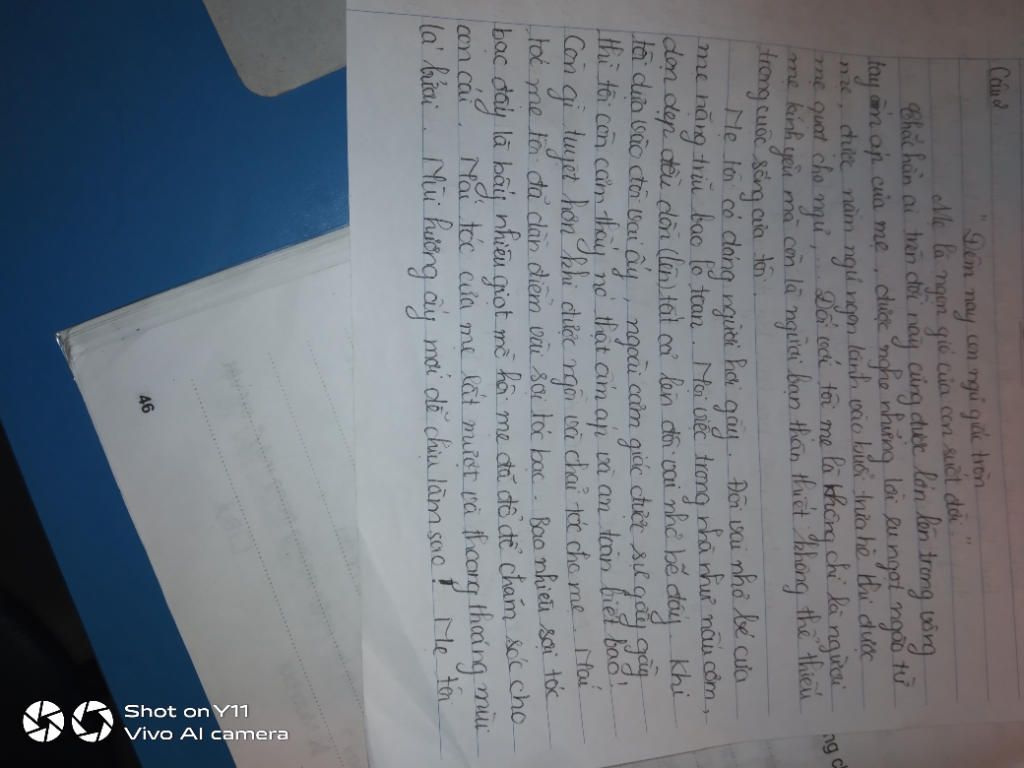 Câu
"Đêm nay con ngủ giấc tròn
Mẹ là ngọn gió của con suốt đời."
Chắc hẳn ai trên đời này cũng được lớn lên trong vòng
tay ấm áp của mẹ, được nghe những lời ru ngọt ngào từ
mẹ, được nằm ngủ ngon lành vào buổi trưa hè thì được
mẹ quạt cho ngủ,... Đối với tôi mẹ là không chỉ là người
mẹ kính yêu mà còn là người bạn thân thiết không thể thiếu
trong cuộc sống của tôi.
Mẹ tôi có dáng người hơi gầy. Đôi vai nhỏ bé của
mẹ nặng trĩu bao lo toan. Mọi việc trong nhà như nấu cơm,
dọn dẹp đều dồn (lên) tất cả lên đôi vai nhỏ bé đấy. Khi
tôi dựa vào đôi vai ấy, ngoài cảm giác được sự gầy gầy
thì tôi còn cảm thấy nó thật ấm áp và an toàn biết bao!
Còn gì tuyệt hơn khi được ngồi và chải tóc cho mẹ. Mái
tóc mẹ tôi đã dần điểm vài sợi tóc bạc. Bao nhiêu sợi tóc
bạc đấy là bấy nhiêu giọt mồ hôi mẹ đã đổ để chăm sóc cho
con cái. Mái tóc của mẹ rất mượt và thoang thoảng mùi
lá bưởi. Mùi hương ấy mới dễ chịu làm sao! Mẹ tôi
46
Shot on Y11
Vivo AI camera